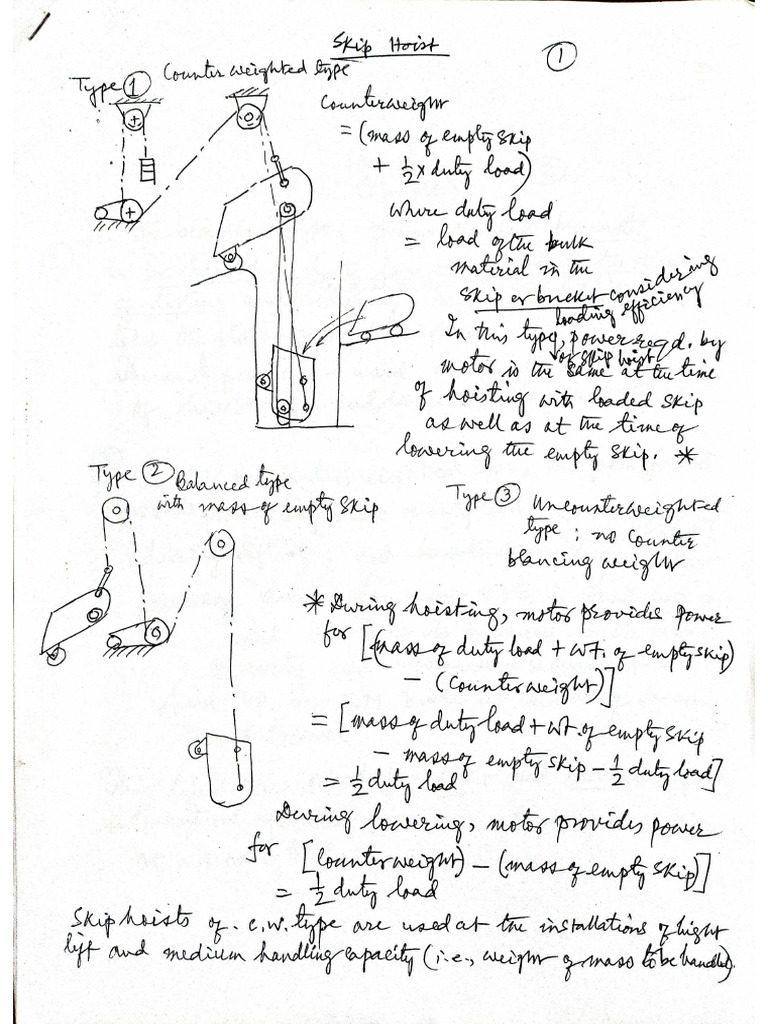 Skip Hoist
①
Type ① Counter weighted type
Counterweight
= (mass of empty skip
+ ½ x duty load)
where duty load
= load of the bulk
material in the
skip or bucket considering
loading efficiency
In this type, power reqd. by
of skip hoist
motor is the same at the time
of hoisting with loaded skip
as well as at the time of
lowering the empty skip. *
Type ② Balanced type
with mass of empty skip
Type ③ Uncounterweighted
type : no counter
blancing weight
* During hoisting, motor provides power
for [(mass of duty load + wt. of empty skip)
- (Counterweight)]
= [mass of duty load + wt. of empty skip
- mass of empty skip - ½ duty load]
= ½ duty load
During lowering, motor provides power
for [(Counterweight) - (mass of empty skip)]
= ½ duty load
Skip hoists of c.w. type are used at the installations of hight
lift and medium handling capacity (i.e., weight of mass to be handled).